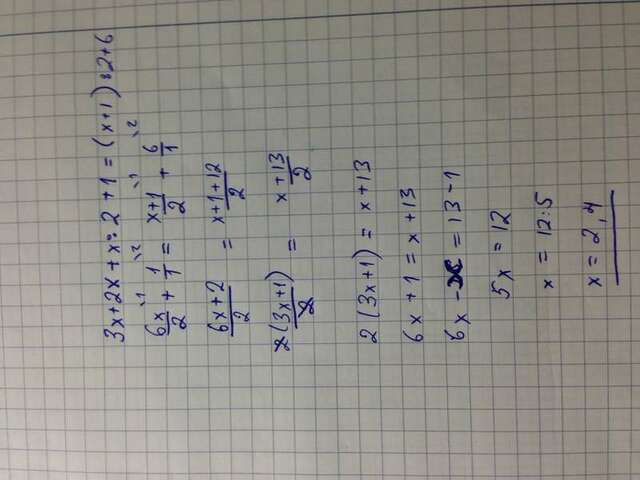 3x+2x+x:2+1=(x+1):2+6
6x/2 \1 + 1/1 \2 = x+1/2 \1 + 6/1 \2
6x+2/2 = x+1+12/2
2(3x+1)/2 = x+13/2
2(3x+1) = x+13
6x+1 = x+13
6x-x = 13-1
5x = 12
x = 12:5
x = 2,4